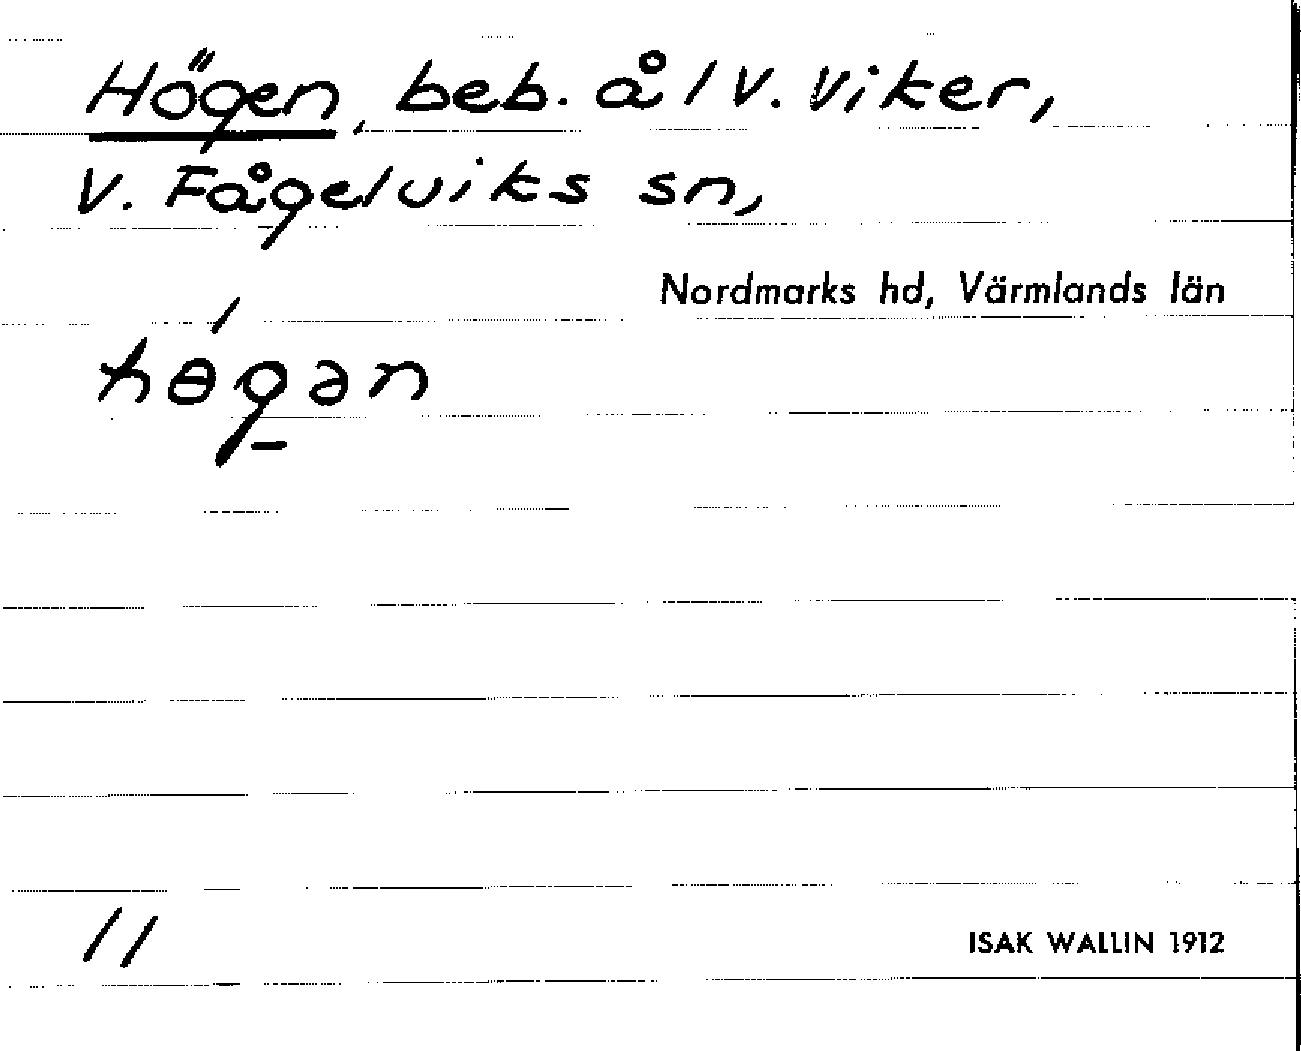 Högen, beb. å 1 V. Viker,
V. Fågelviks sn,
Nordmarks hd, Värmlands län
hɵ́g̠ən
11
ISAK WALLIN 1912